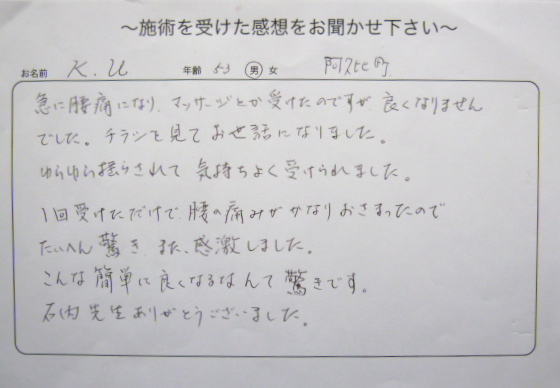 ～施術を受けた感想をお聞かせ下さい～
お名前 K.U 年齢 53 男 女 阿久比町
急に腰痛になり、マッサージとか受けたのですが良くなりません
でした。チラシを見てお世話になりました。
ゆらゆら揺らされて気持ちよく受けられました。
1回受けただけで、腰の痛みがかなりおさまったので
たいへん驚き また、感激しました。
こんな簡単に良くなるなんて驚きです。
石内先生ありがとうございました。